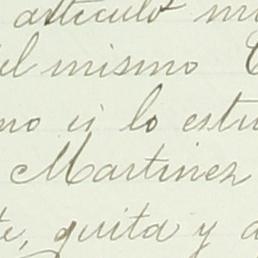 articulo m
el mismo C
no ú lo estu
Martinez
te, quita y a